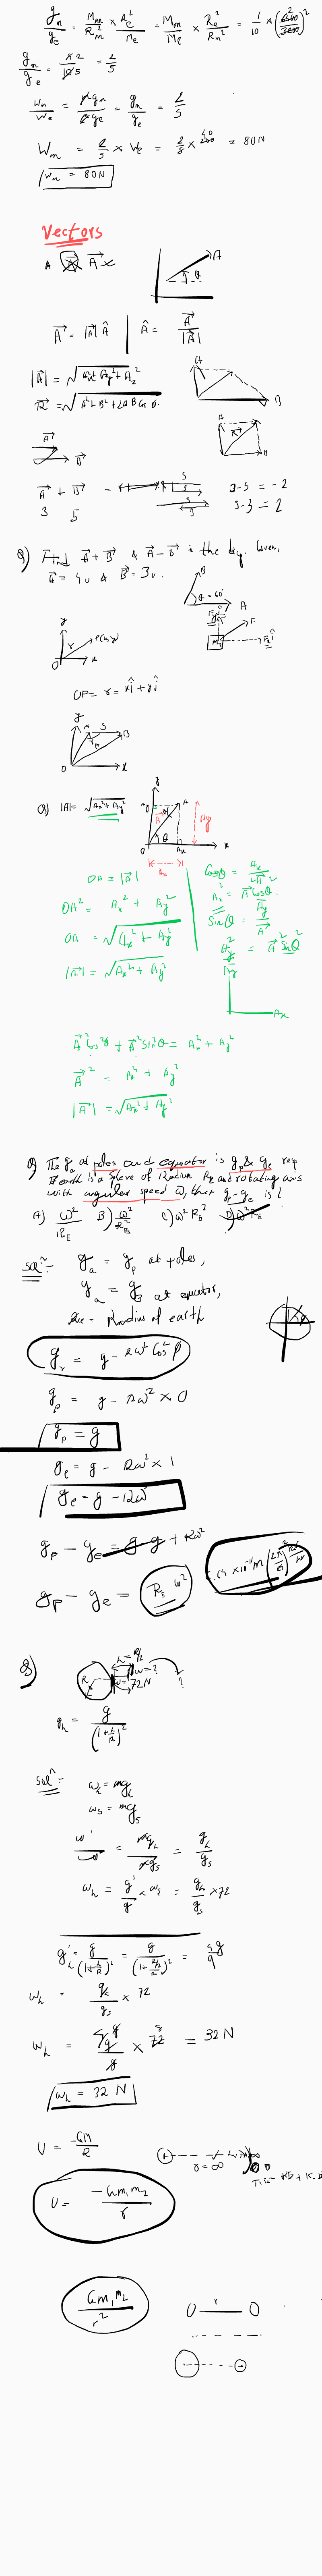 g_m/g_e = M_m/R_m² × R_e²/M_e = M_m/M_e × R_e²/R_m² = 1/10 ×
g_m/g_e = 2/5
W_m/W_e = m g_m/m g_e = g_m/g_e = 2/5
W_m = 2/5 × W_e = 2/5 × 200 = 80N
W_m = 80N
Vectors
A
A θ
A⃗ = |A⃗| Â | Â = A⃗/|A⃗|
|A⃗| = √A_x² + A_y² + A_z²
R⃗ = √A² + B² + 2AB Cos θ
A⃗ + B⃗
3 5
3-5 = -2
5-3 = 2
Q) Find A⃗ + B⃗ & A⃗ - B⃗ is the dig. Given,
A⃗ = 4u & B⃗ = 3u.
B θ = 60° A
y r P(x,y) O x
OP = r = xî + yĵ
y A S B O x
Q) |A| = √A_x² + A_y²
y A A_y θ O A_x x
OA = |A⃗|
OA² = A_x² + A_y²
OA = √A_x² + A_y²
|A⃗| = √A_x² + A_y²
Cosθ = A_x/A⃗
A_x² = A⃗² Cosθ²
Sinθ = A_y/A⃗
A_y² = A⃗² Sinθ²
A_y
A_x
A⃗² Cos²θ + A⃗² Sin²θ = A_x² + A_y²
A⃗² = A_x² + A_y²
|A⃗| = √A_x² + A_y²
Q) The g_a at poles and equator is g_p & g_e resp
If earth is a sphere of Radius R_E and rotating axis
with angular speed ω, then g_p - g_e is?
A) ω²/R_E B) ω²/R_E C) ω² R_E² D) ω² R_E
Sol^n :-
g_a = g_p at poles,
g_a = g_e at equator,
R_e = Radius of earth
g_r = g - Rω² Cos² β
g_p = g - Rω² × 0
g_p = g
g_e = g - Rω² × 1
g_e = g - Rω²
g_p - g_e = g - g + Rω²
g_p - g_e = R_E ω²
Q)
R h = R/2 W = ? W = 72 N ?
g_h = g/(1 + h/R)²
Sol^n :-
W_h = mg_h
W_s = mg_s
W'/W = mg_h/mg_s = g_h/g_s
W_h = g'/g × W_s = g_h/g_s × 72
g'_h = g/(1 + h/R)² = g/(1 + R/2/R)² = 4g/9
W_h = g_h/g_s × 72
W_h = 4g/9/g × 72 = 32 N
W_h = 32 N
U = -GM/R
r = ∞
U = -Gm₁m₂/r
Gm₁m₂/r²
r